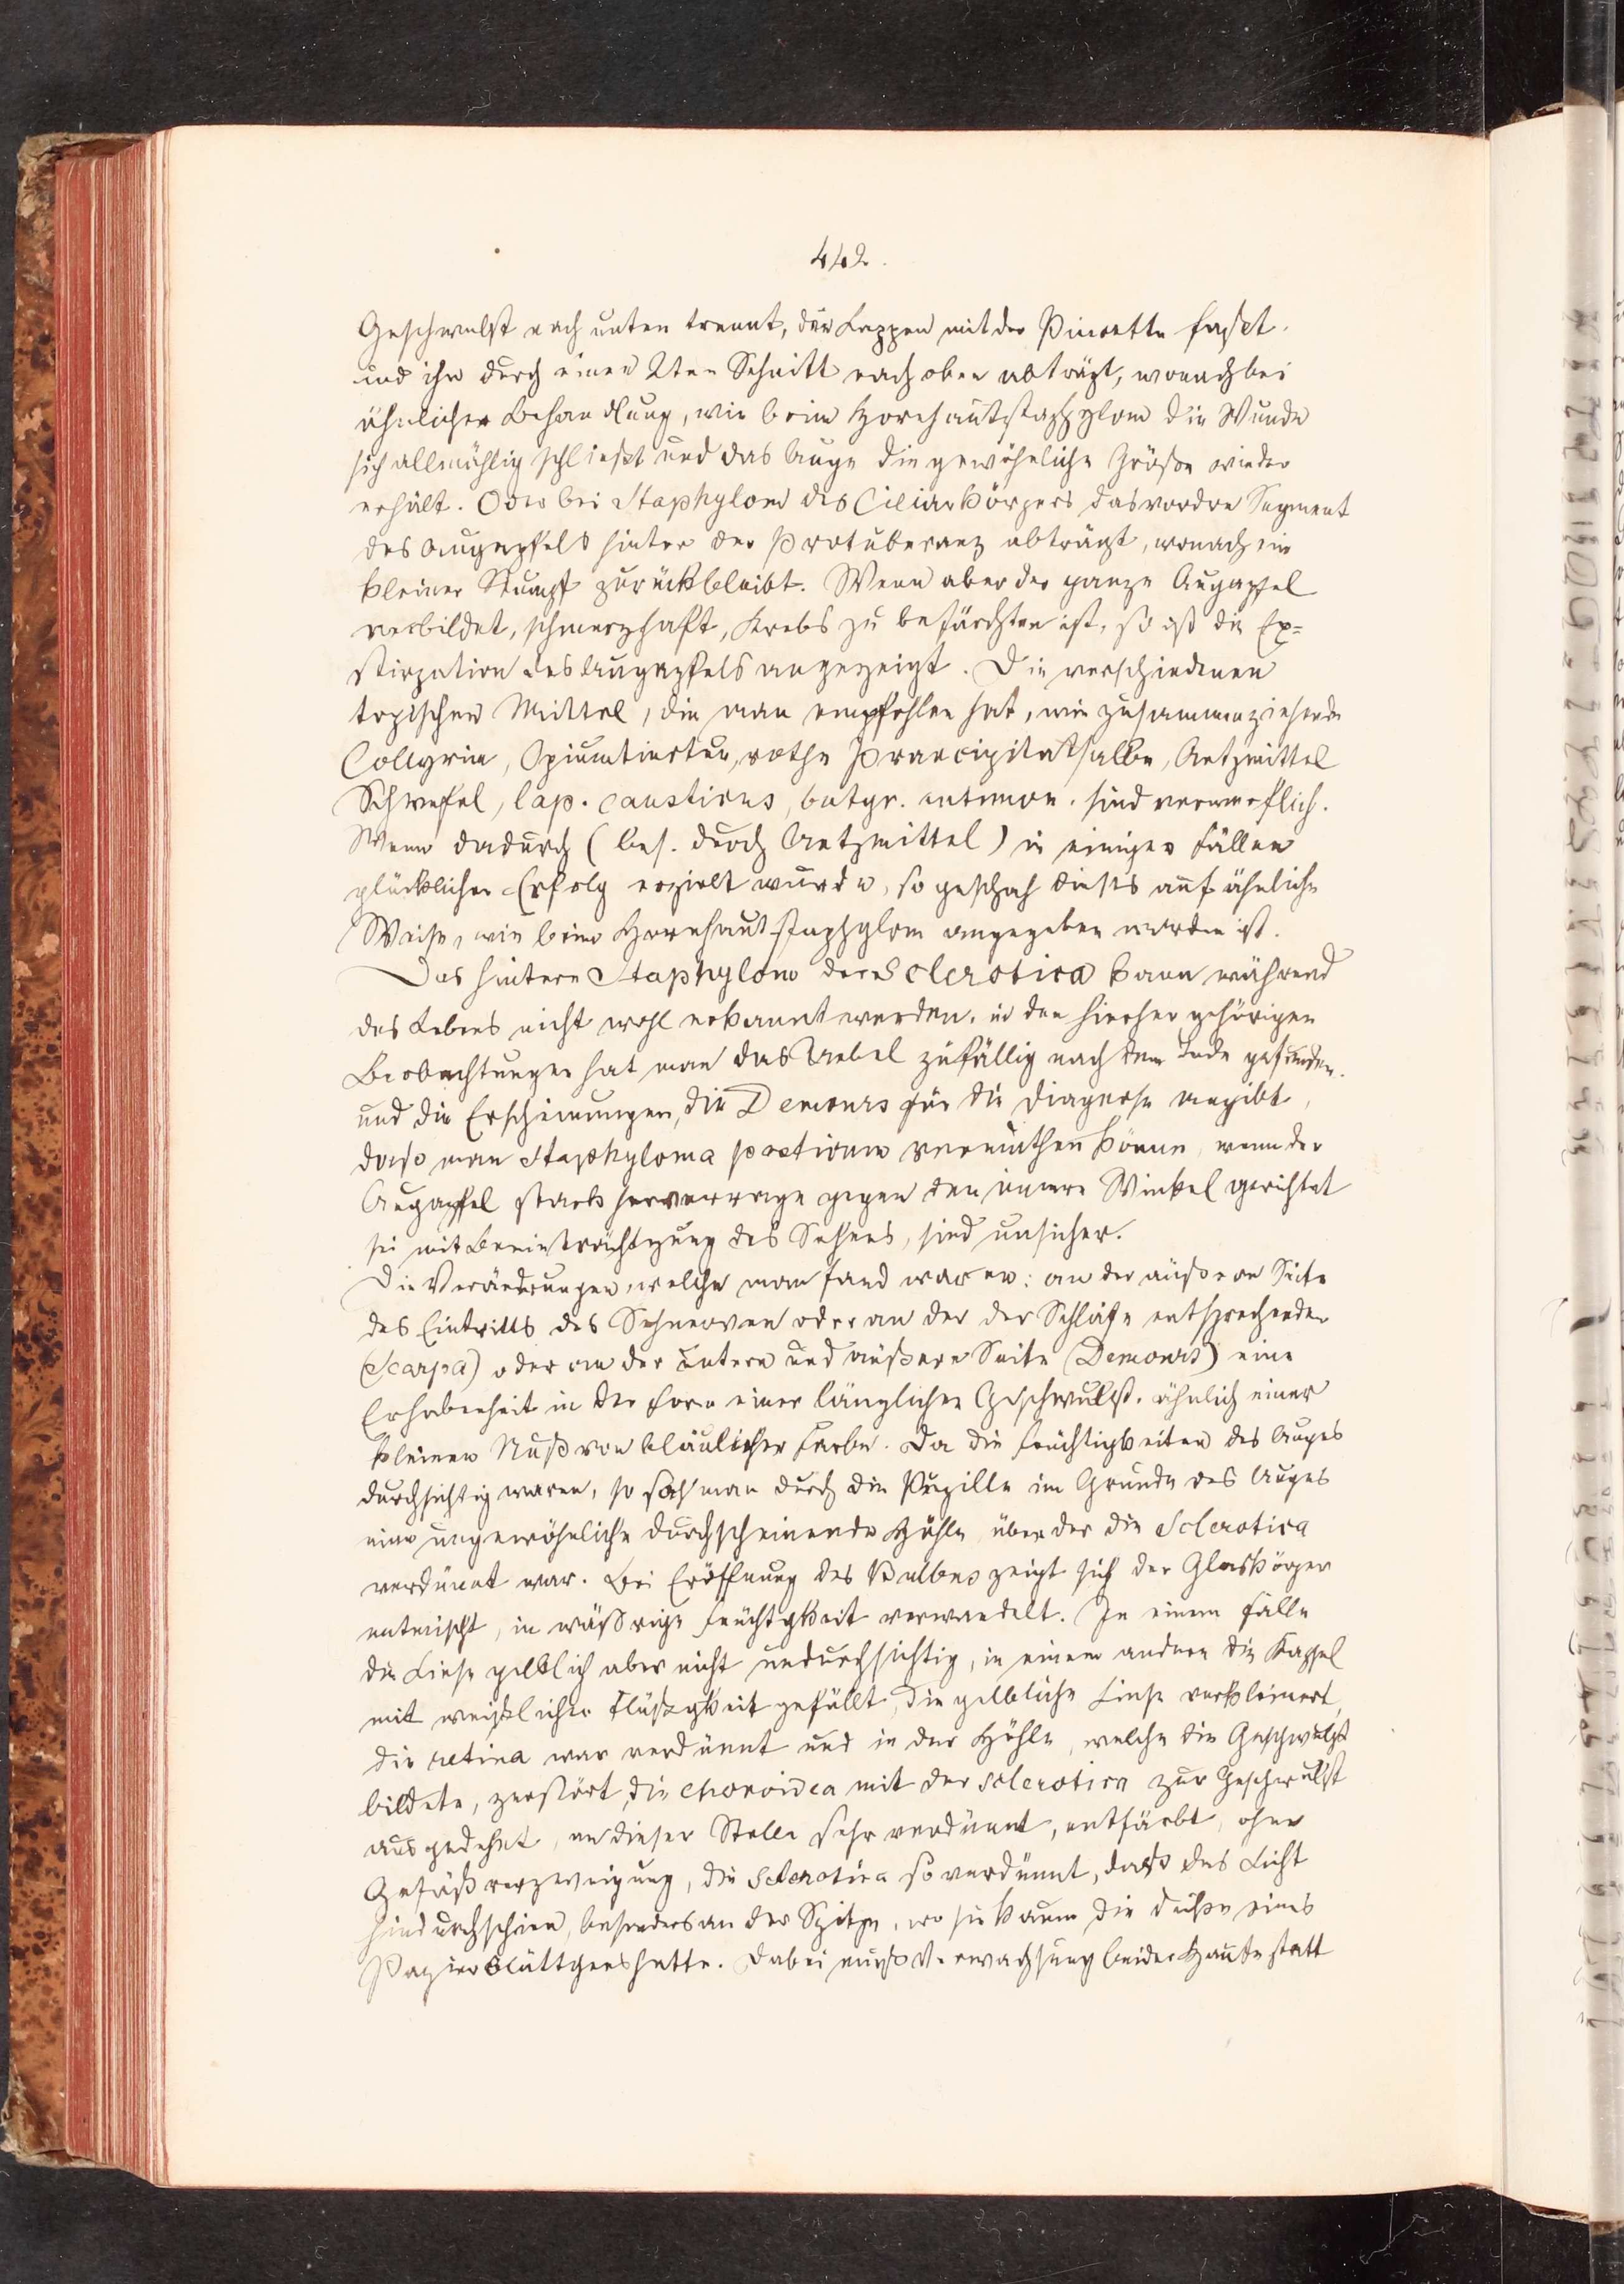 442.
Geschwulst nach unten trennt, den Lappen mit der Pincette faßt
und ihn durch einen 2ten Schnitt nach oben abträgt, wonach bei
ähnlicher Behandlung, wie beim Hornhautstaphylom die Wunde
sich allmählig schließt und das Auge die gewöhnliche Größe wieder
erhält. Oder bei Staphylom des Ciliarkörpers das vordre Segment
des Augapfels hinter der Protuberanz abträgt, wonach ein
kleiner Stumpf zurückbleibt. Wenn aber der ganze Augapfel
verbildet, schmerzhaft, Krebs zu befürchten ist, so ist die Ex=
stirpation des Augapfels angezeigt. Die verschiedenen
topischen Mittel, die man empfohlen hat, wie zusammenziehende
Collyrien, Opiumtinctur, rothe Praecipitatsalbe, Aetzmittel
Schwefel, lap. causticus, butyr. antimon. sind verwerflich.
Wenn dadurch (bes. durch Aetzmittel) in einigen Fällen
glücklicher Erfolg erzielt wurde, so geschah dieses auf ähnliche
Weise, wie beim Hornhautstaphylom angegeben worden ist.
Das hintere Staphylom der Sclerotica kann während
des Lebens nicht wohl erkannt werden, in den hierher gehörigen
Beobachtungen hat man das Uebel zufällig nach dem Tode gefunden.
und die Erscheinungen, die Demours für die Diagnose angibt,
daß man Staphyloma posticum vermuthen könne, wenn der
Augapfel stark hervorrage gegen den innern Winkel gerichtet
sei mit Beeinträchtigung des Sehens, sind unsicher.
Die Veränderungen, welche man fand waren: an der äußeren Seite
des Eintritts des Sehnerven oder an der der Schläfe entsprechenden
(Scarpa) oder an der untern und äußern Seite (Demours) eine
Erhabenheit in der Form einer länglichen Geschwulst, ähnlich einer
kleinen Nuß von bläulicher Farbe. Da die Feuchtigkeiten des Auges
durchsichtig waren, so sah man durch die Pupille im Grunde des Auges
eine ungewöhnliche durchscheinende Höhle, über der die Sclerotica
verdünnt war. Bei Eröffnung des Bulbus zeigt sich der Glaskörper
entmischt, in wäßrige Feuchtigkeit verwandelt. In einem Falle
die Linse gelblich aber nicht undurchsichtig, in einem andern die Kapsel
mit weißlicher Flüßigkeit gefüllt, die gelbliche Linse verkleinert,
die retina war verdünnt und in der Höhle, welche die Geschwulst
bildete, zerstört, die choroidea mit der sclerotica zur Geschwulst
ausgedehnt, an dieser Stelle sehr verdünnt, entfärbt, ohne
Gefäßverzweigung, die Sclerotica so verdünnt, daß das Licht
hindurchschien, besonders an der Spitze, wo sie kaum die Dicke eines
Papierblättchens hatte. Dabei muß Verwachsung beider Häute statt